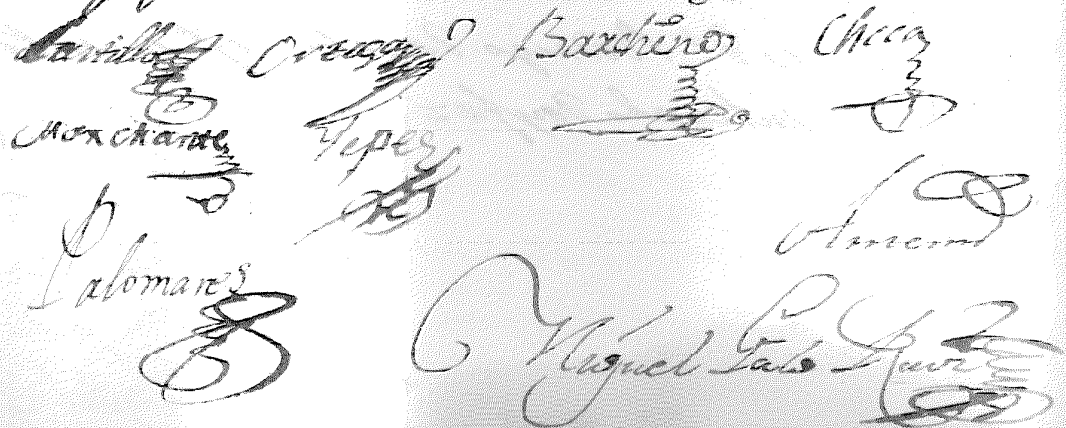 Castillo Ortega Barchino Checa
Marchante Yepes
Palomares
Miguel Palo